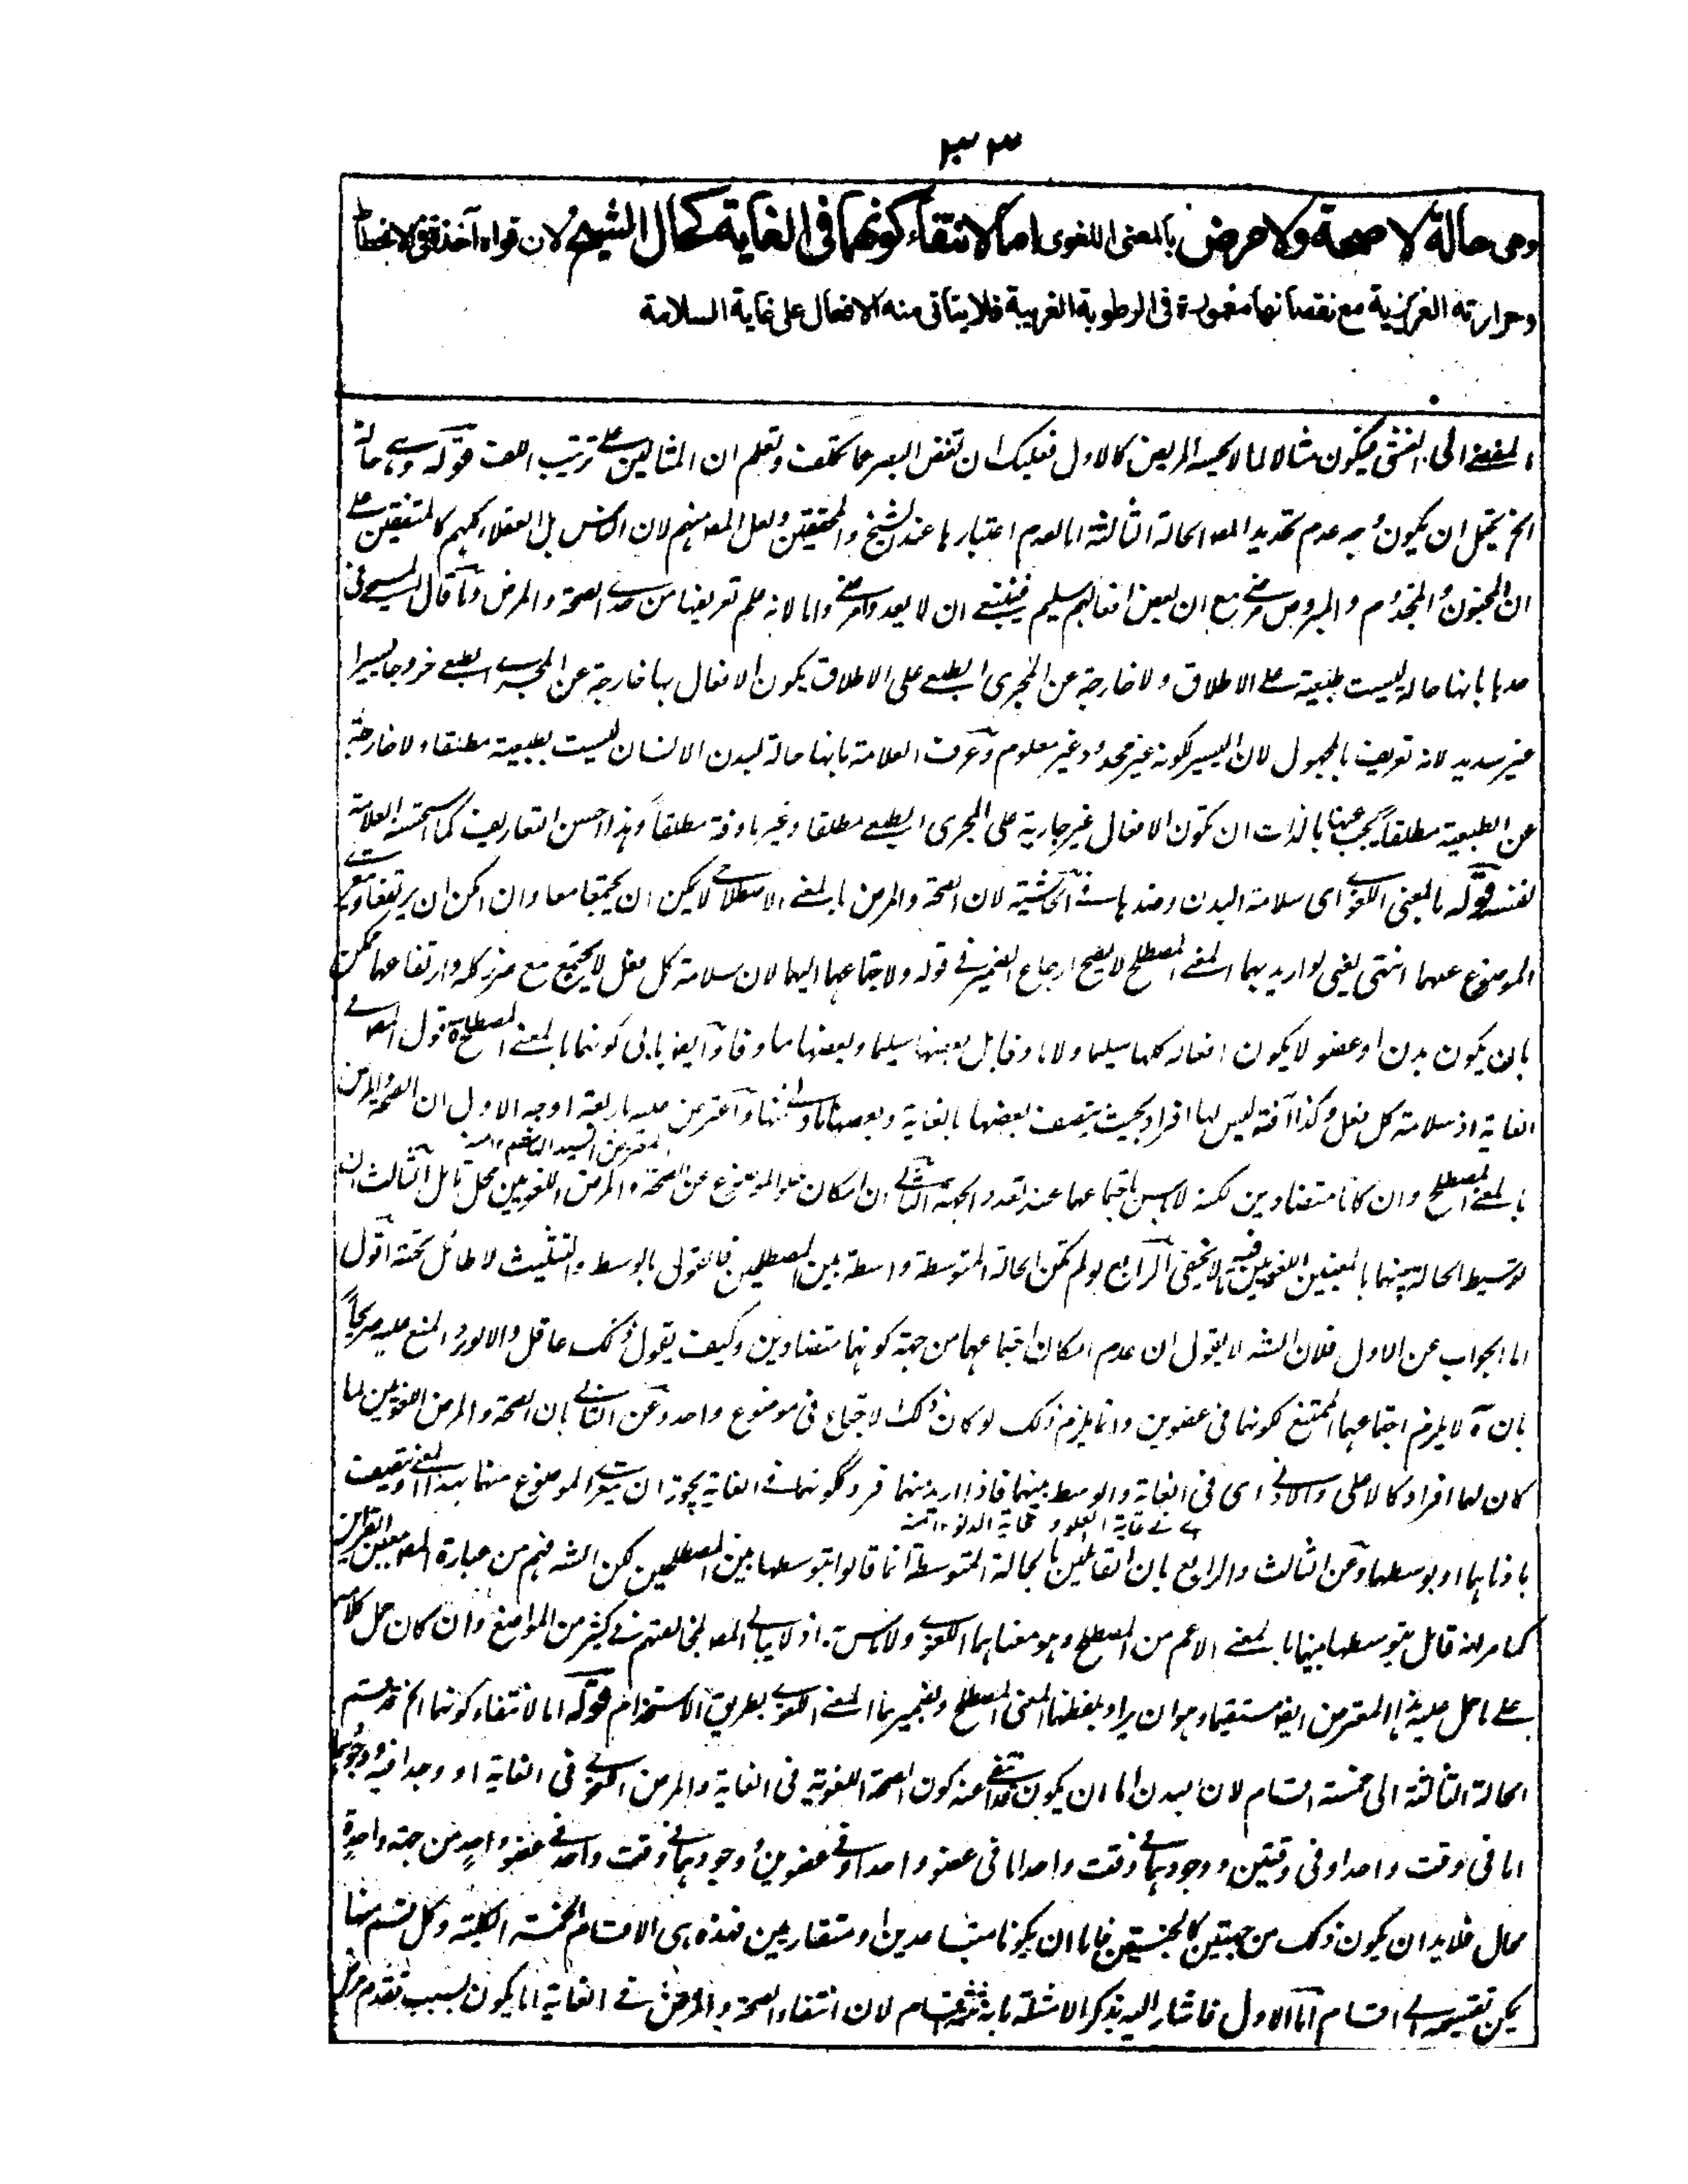 ٢٣٣
وهى حالة لا صحة ولا مرض بالمعنى اللغوى اما لانتفاء كونهما فى الغاية كحال الشيوخ لان قواه آخذة فى الانحطاط
وحرارته الغريزية مع نقصانها مغمورة فى الرطوبة الغريبة فلا يتاتى منه الافعال على غاية السلامة
المفضے الى الغشى فيكون مثالا لما لا يحسه المريض كالاول فعليك ان تغض البصر عما تكلف وتعلم ان المثالين علے ترتيب اللف قوله وهے حالة
الخ يحتمل ان يكون وجه عدم تحديد المصـ الحالة الثالثة اما لعدم اعتبارها عند الشيخ والمحققين ولعل المصـ منهم لان الناس بل العقلاء كلهم كالمتفقين علے
ان المجنون والمجذوم والمبروص مرضے مع ان بعض افعالهم سليم فينبغے ان لا يعدوا مرضے واما لانه علم تعريفها من حدے الصحة والمرض وما قال المسيحے فى
حدها بانها حالة ليست طبيعية علے الاطلاق ولا خارجة عن المجرى الطبعے على الاطلاق يكون الافعال بها خارجة عن المجرے الطبعے خروجا يسيرا
غير سديد لانه تعريف بالمجهول لان اليسير لكونه غير محدود غير معلوم وعرف العلامة بانها حالة لبدن الانسان ليست بطبيعية مطلقا ولا خارجة
عن الطبيعية مطلقا يجب عنها بالذات ان تكون الافعال غير جارية على المجرى الطبعے مطلقا وغير ماوفة مطلقا وهذا احسن التعاريف كما استحسنه العلامة
لنفسه قوله بالمعنى اللغوے اى سلامة البدن وضدها فے الحاشية لان الصحة والمرض بالمعنے الاصطلاحے لا يمكن ان يجتمعا معا وان امكن ان يرتفعا ويتعرے
الموضوع عنهما انتهى يعنى لو اريد بهما المعنے المصطلح لا يصح ارجاع الضمير فے قوله ولاجتماعهما اليهما لان سلامة كل فعل لا يجتمع مع ضرر كله وارتفاعهما ممكن
بان يكون بدن او عضو لا يكون افعاله كلها سليما ولا ماوفا بل بعضها سليما وبعضها ماوفا وايضا يابى كونهما بالمعنے المصطلح قول المصـ فے
الغاية اذ سلامة كل فعل وكذا آفته ليس لها افراد بحيث يتصف بعضها بالغاية وبعضها بادونها واعترض عليه باربعة اوجه الاول ان الصحة والمرض
المعترض السيد ١٢ منه
بالمعنے المصطلح وان كانا متضادين لكنه لا باس باجتماعهما عند تعدد الجهة الثانے ان امكان خلو الموضوع عن الصحة والمرض اللغويين محل تامل الثالث ان
توسيط الحالة بينهما بالمعنيين اللغويين فيه ما لا يخفى الرابع لو لم تكن الحالة المتوسطة واسطة بين المصطلحين فالقول بالوسط والتثليث لا طائل تحته اقول
اما الجواب عن الاول فلان الشـ لا يقول ان عدم امكان اجتماعهما من جهة كونهما متضادين وكيف يقول ذلك عاقل والا لورد المنع عليه صريحا
بانه لا يلزم اجتماعهما الممتنع لكونهما فى عضوين وانما يلزم ذلك لو كان ذلك الاجتماع فى موضوع واحد وعن الثانے بان الصحة والمرض اللغويين لما
كان لهما افراد كالاعلى والادنے اى فى الغاية والوسط بينهما فاذا اريد منهما فرد لكونهما فے الغاية يجوز ان يتعرے الموضوع منهما بهذا المعنے ويتصف
اے فے غاية العلو وغاية الدنو ١٢ منه
باذنابهما او بوسطهما وعن الثالث والرابع بان القائلين بالحالة المتوسطة انما قالوا بتوسطها بين المصطلحين لكن الشـ فهم من عبارة المصـ بمعين القرائن
كما مر انه قائل بتوسطها بينهما بالمعنے الاعم من المصطلح وهو معناهما اللغوے ولا باس اذ لا يبالے المصـ لمخالفتهم فے كثير من المواضع وان كان حمل كلامه
علے ما حمل عليه هذا المعترض ايضا مستقيما وهو ان يراد بلفظهما المعنى المصطلح وبضميرهما المعنے اللغوے بطريق الاستخدام قوله اما لانتفاء كونهما الخ قد قسم
الحالة الثالثة الى خمسة اقسام لان البدن اما ان يكون منتفے عنه كون الصحة اللغوية فى الغاية والمرض اللغوے فى الغاية او وجدا فيه ووجودهما
اما فى وقت واحد او فى وقتين ووجودهما فے وقت واحد اما فى عضو واحد او فے عضوين ووجودهما فے وقت واحد فے عضو واحد من جهة واحدة
محال فلا بد ان يكون ذلك من جهتين كالجنسين فاما ان يكونا متباعدين او متقاربين فهذه هى الاقسام الخمسة الكلية وكل قسم منها
يمكن تقسيمه الے اقسام اما الاول فاشار اليه بذكر الامثلة بانه ثلثة اقسام لان انتفاء الصحة والمرض فے الغاية اما يكون بسبب تقدم مرض